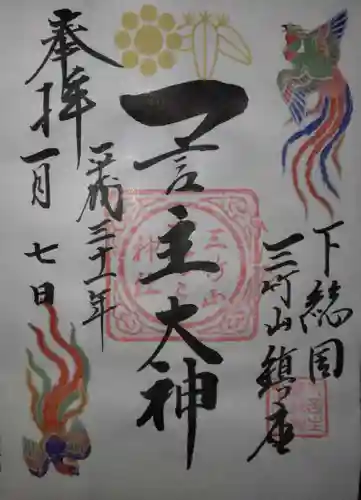 下総国
三竹山鎮座
一言主大神
三竹山
神社
平成三十一年
奉拝
一月七日